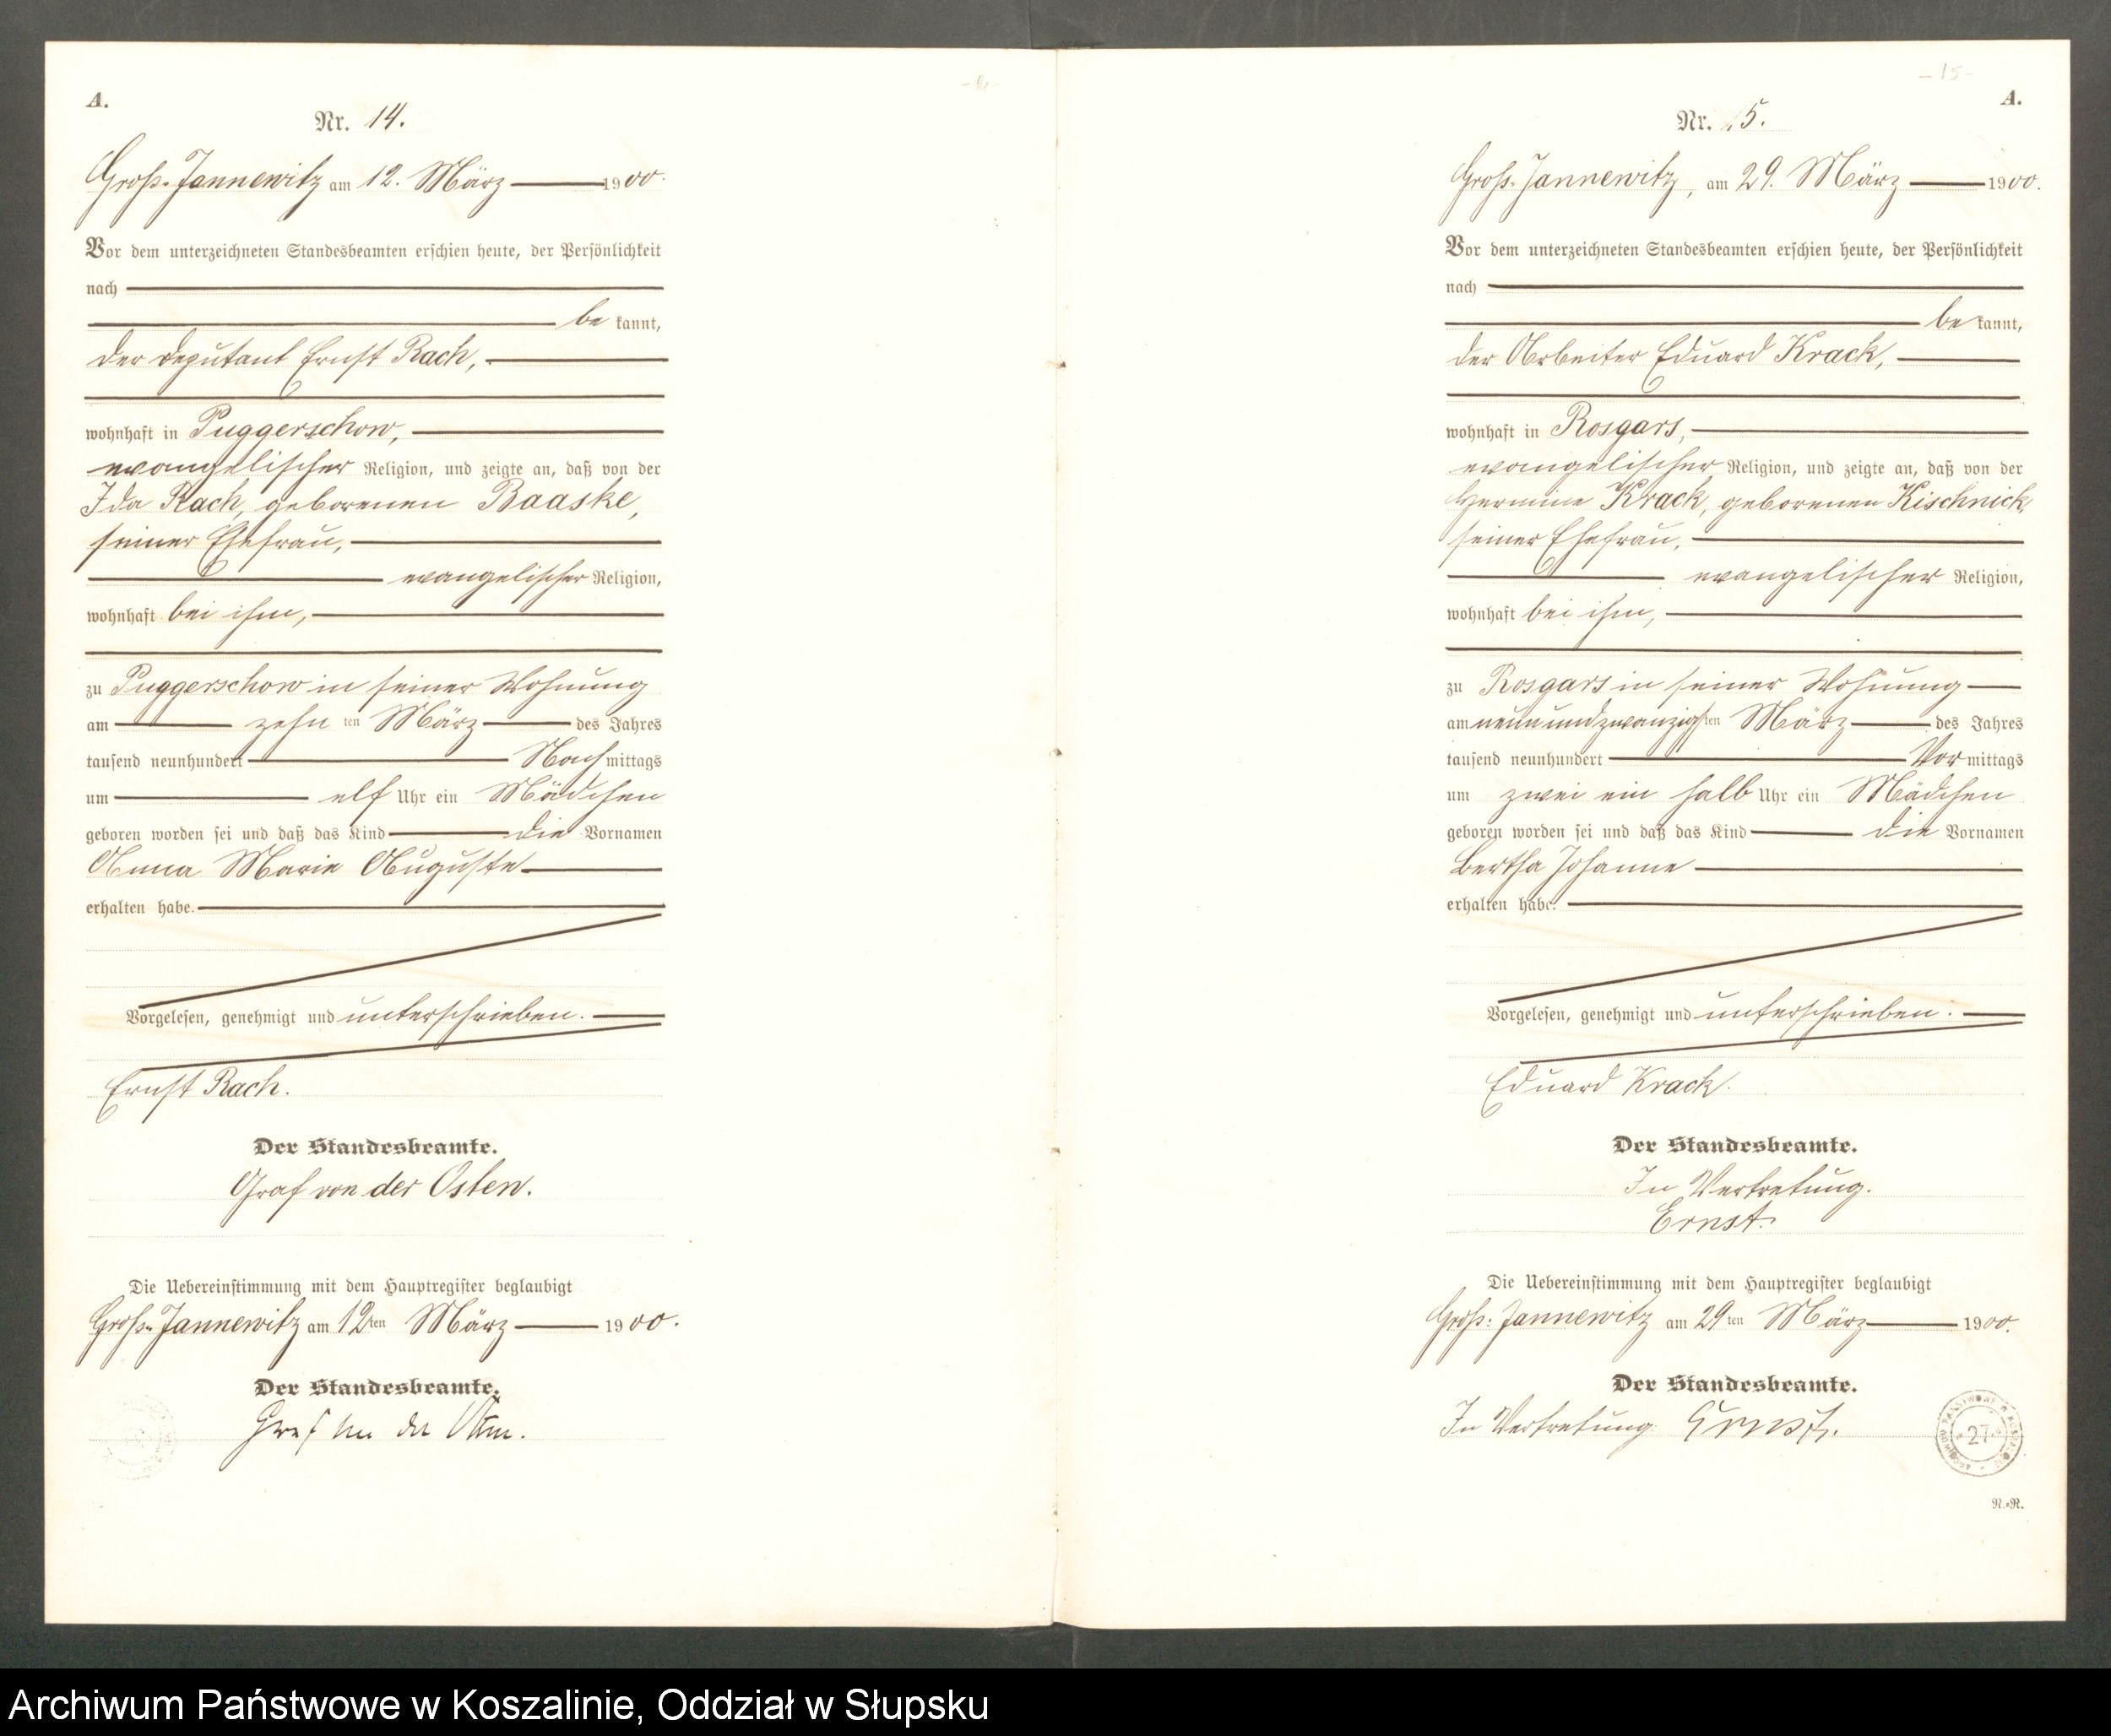 -14-
A.
Nr. 14.
Groß-Jannewitz am 12. März 1900.
Vor dem unterzeichneten Standesbeamten erschien heute, der Persönlichkeit
nach
be kannt,
der Deputant Ernst Rach,
wohnhaft in Puggerschow,
evangelischer Religion, und zeigte an, daß von der
Ida Rach, geborenen Baaske,
seiner Ehefrau,
evangelischer Religion,
wohnhaft bei ihm,
zu Puggerschow in seiner Wohnung
am zehn ten März des Jahres
tausend neunhundert Nach mittags
um elf Uhr ein Mädchen
geboren worden sei und daß das Kind die Vornamen
Anna Marie Auguste
erhalten habe.
Vorgelesen, genehmigt und unterschrieben.
Ernst Rach.
Der Standesbeamte.
Graf von der Osten.
Die Uebereinstimmung mit dem Hauptregister beglaubigt
Groß-Jannewitz am 12ten März 1900.
Der Standesbeamte.
Graf von der Osten.
-15-
A.
Nr. 15.
Groß-Jannewitz, am 29. März 1900.
Vor dem unterzeichneten Standesbeamten erschien heute, der Persönlichkeit
nach
be kannt,
der Arbeiter Eduard Krack,
wohnhaft in Rosgars,
evangelischer Religion, und zeigte an, daß von der
Hermine Krack, geborenen Kischnick,
seiner Ehefrau,
evangelischer Religion,
wohnhaft bei ihm,
zu Rosgars in seiner Wohnung
am neunundzwanzigsten März des Jahres
tausend neunhundert Vor mittags
um zwei ein halb Uhr ein Mädchen
geboren worden sei und daß das Kind die Vornamen
Bertha Johanne
erhalten habe.
Vorgelesen, genehmigt und unterschrieben.
Eduard Krack.
Der Standesbeamte.
In Vertretung.
Ernst.
Die Uebereinstimmung mit dem Hauptregister beglaubigt
Groß-Jannewitz am 29ten März 1900.
Der Standesbeamte.
In Vertretung Ernst.
27
N.=R.
Archiwum Państwowe w Koszalinie, Oddział w Słupsku